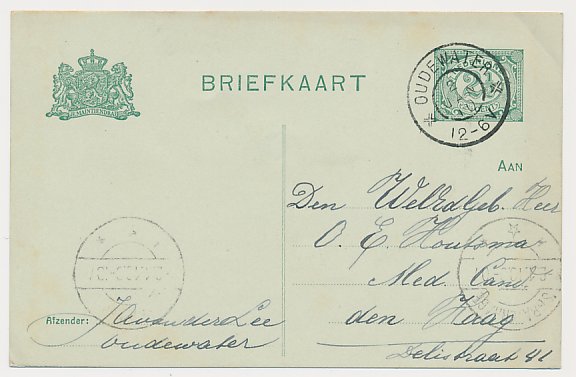 BRIEFKAART
JE MAINTIENDRAI
OUDEWATER
12-6 V
AAN
Den WelEdGeb. Heer
O. E. Houtsma
Med. Cand.
den Haag
Delistraat 41
Afzender: J.C. van der Lee
oudewater